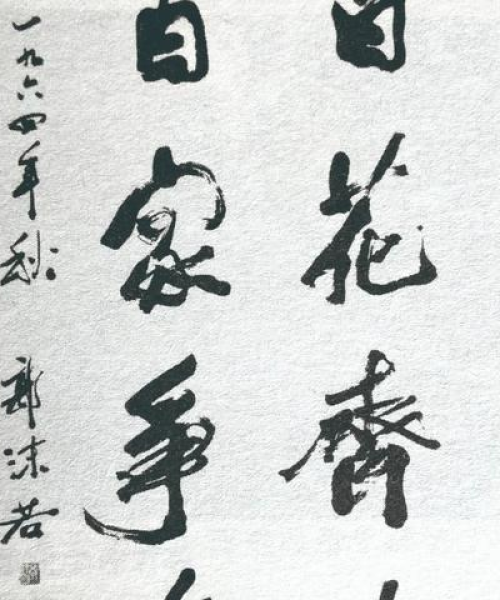 百花齊
百家爭
一九六四年秋 郭沫若